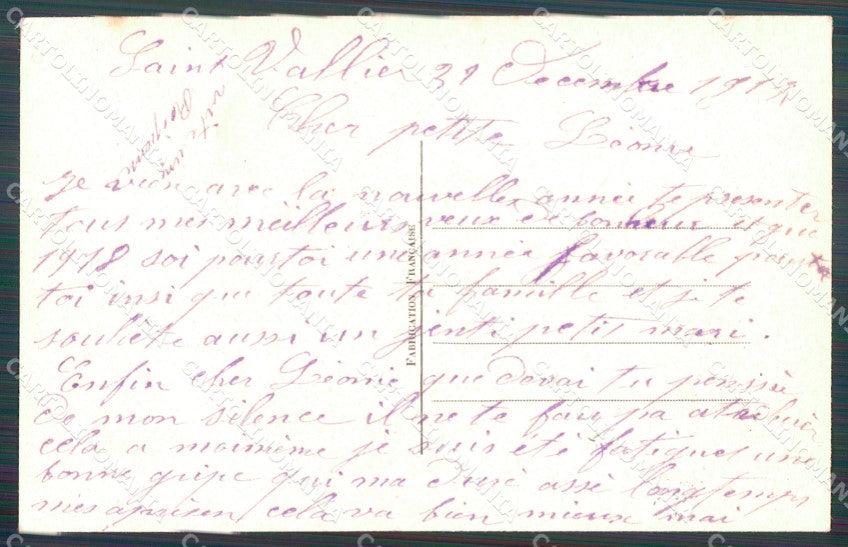 Saint Vallier 31 Decembre 1917
Cher petite Léonie
vite une
Je vien avec la nouvelles année te presenter
tous mes meilleurs veux de bonheur et que
1918 soi pour toi une année favorable pour
toi insi que toute ta famille et je te
souhete aussi un jenti petit mari.
Enfin Cher Léonie que devai tu pensée
de mon silence il ne te fau pa atribuér
cela a moimeme je suis été fatiguée une
bonne gripe qui ma duré assé longtemps
mes aprésen cela va bien mieux mai
FABRICATION FRANÇAISE
CARTOLINOMANIA